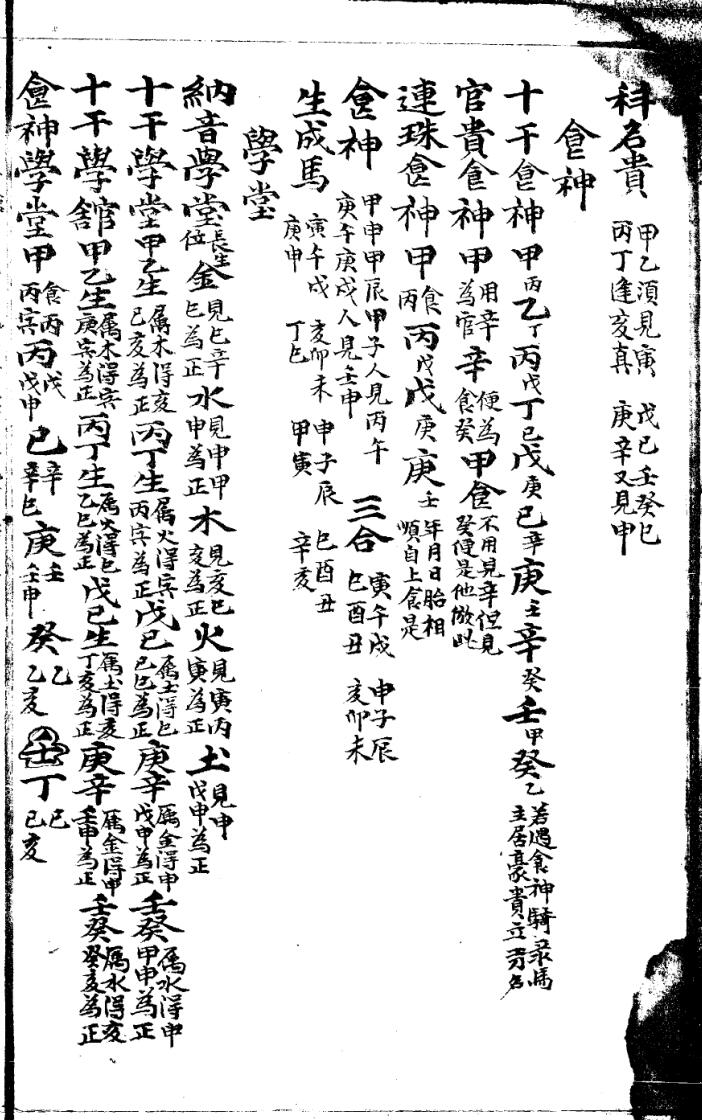 科名貴 甲乙須見寅 戊己壬癸巳 丙丁逢亥真 庚辛又見申
食神
十干食神 甲丙 乙丁 丙戊 丁己 戊庚 己辛 庚壬 辛癸 壬甲 癸乙 若遇食神騎祿馬 主居豪貴立芳名
官貴食神 甲 用辛為官 辛 便為食癸 甲食 不用見辛但見癸便是他倣此
連珠食神 甲 食丙 丙戊 戊庚 庚壬 年月日胎相順自上食是
食神 甲申甲辰甲子人見丙午 庚午庚戌人見壬申 三合 寅午戌 申子辰 巳酉丑 亥卯未
生成馬 寅午戌 庚申 亥卯未 丁巳 申子辰 甲寅 巳酉丑 辛亥
學堂
納音學堂 長生位 金 見巳辛巳為正 水 見申甲申為正 木 見亥己亥為正 火 見寅丙寅為正 土 見申戊申為正
十干學堂 甲乙生 屬木得亥己亥為正 丙丁生 屬火得寅丙寅為正 戊己 屬土得巳己巳為正 庚辛 屬金得申戊申為正 壬癸 屬水得申甲申為正
十干學館 甲乙生 屬木得寅庚寅為正 丙丁生 屬火得巳乙巳為正 戊己生 屬土得亥丁亥為正 庚辛 屬金得申壬申為正 壬癸 屬水得亥癸亥為正
食神學堂 甲 食丙丙寅 丙 戊戊申 己 辛辛巳 庚 壬壬申 癸 乙乙亥 丁 己己亥